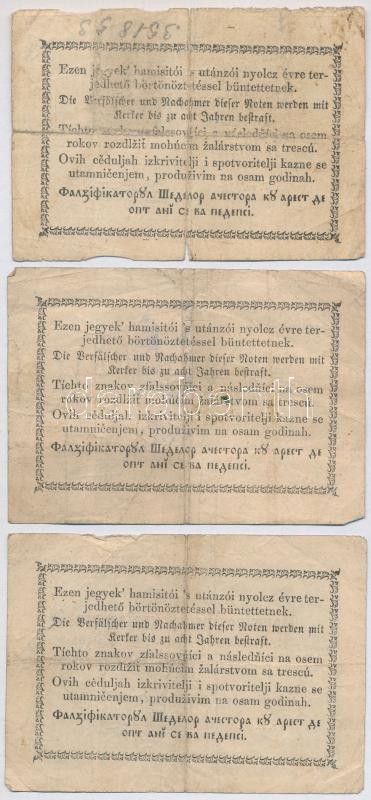 35185
Ezen jegyek’ hamisitói ’s utánzói nyolcz évre ter-
jedhető börtönöztetéssel büntettetnek.
Die Verfälscher und Nachahmer dieser Noten werden mit
Kerker bis zu acht Jahren bestraft.
Tíchto znakov zfalssovňíci a následňíci na osem
rokov rozdlžit mohúcim žalárstvom sa trescú.
Ovih céduljah izkrivitelji i spotvoritelji kazne se
utamničenjem, produživim na osam godinah.
Фалзіфікаторꙋл Шеделор ачестора кꙋ арест де
опт анĭ се ва педепсі.
Ezen jegyek’ hamisitói ’s utánzói nyolcz évre ter-
jedhető börtönöztetéssel büntettetnek.
Die Verfälscher und Nachahmer dieser Noten werden mit
Kerker bis zu acht Jahren bestraft.
Tíchto znakov zfalssovňíci a následňíci na osem
rokov rozdlžit mohúcim žalárstvom sa trescú.
Ovih céduljah izkrivitelji i spotvoritelji kazne se
utamničenjem, produživim na osam godinah.
Фалзіфікаторꙋл Шеделор ачестора кꙋ арест де
опт анĭ се ва педепсі.
Ezen jegyek’ hamisitói ’s utánzói nyolcz évre ter-
jedhető börtönöztetéssel büntettetnek.
Die Verfälscher und Nachahmer dieser Noten werden mit
Kerker bis zu acht Jahren bestraft.
Tíchto znakov zfalssovňíci a následňíci na osem
rokov rozdlžit mohúcim žalárstvom sa trescú.
Ovih céduljah izkrivitelji i spotvoritelji kazne se
utamničenjem, produživim na osam godinah.
Фалзіфікаторꙋл Шеделор ачестора кꙋ арест де
опт анĭ се ва педепсі.